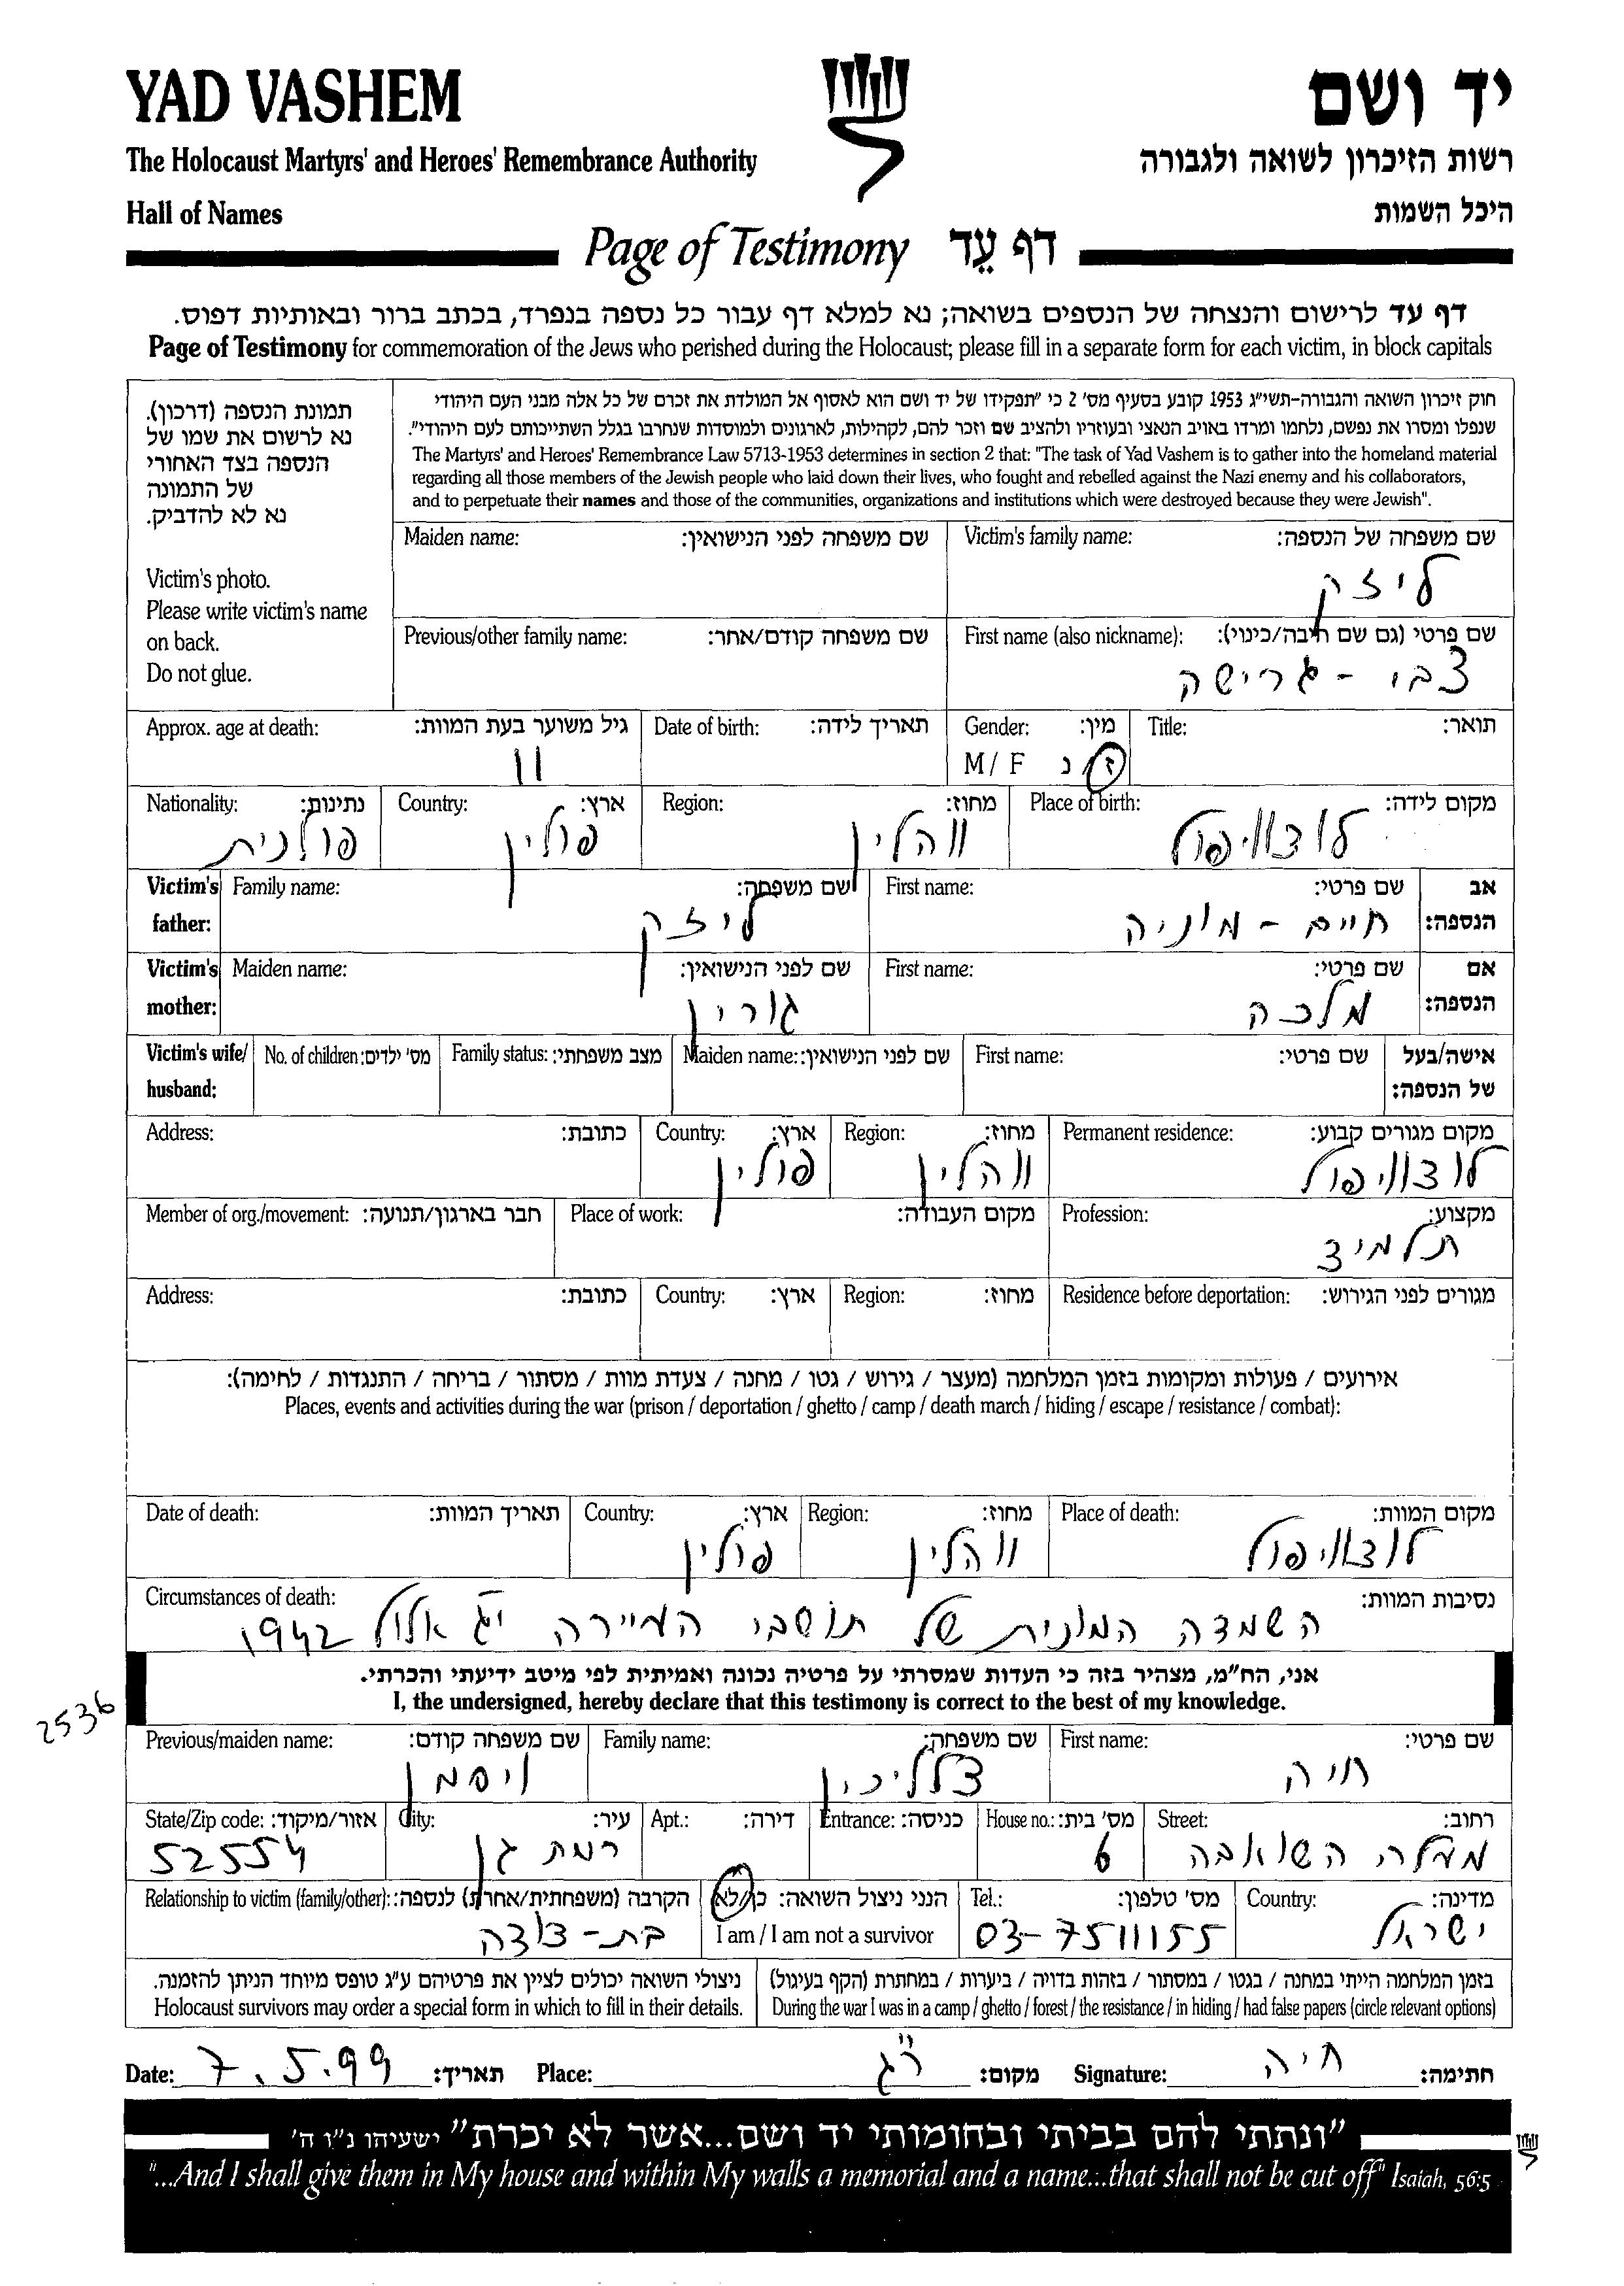 YAD VASHEM
יד ושם
The Holocaust Martyrs' and Heroes' Remembrance Authority
רשות הזיכרון לשואה ולגבורה
Hall of Names
היכל השמות
Page of Testimony דף עֵד
דף עד לרישום והנצחה של הנספים בשואה; נא למלא דף עבור כל נספה בנפרד, בכתב ברור ובאותיות דפוס.
Page of Testimony for commemoration of the Jews who perished during the Holocaust; please fill in a separate form for each victim, in block capitals
תמונת הנספה (דרכון).
נא לרשום את שמו של
הנספה בצד האחורי
של התמונה
נא לא להדביק.
Victim's photo.
Please write victim's name
on back.
Do not glue.
חוק זיכרון השואה והגבורה-תשי"ג 1953 קובע בסעיף מס' 2 כי "תפקידו של יד ושם הוא לאסוף אל המולדת את זכרם של כל אלה מבני העם היהודי
שנפלו ומסרו את נפשם, נלחמו ומרדו באויב הנאצי ובעוזריו ולהציב שם וזכר להם, לקהילות, לארגונים ולמוסדות שנחרבו בגלל השתייכותם לעם היהודי".
The Martyrs' and Heroes' Remembrance Law 5713-1953 determines in section 2 that: "The task of Yad Vashem is to gather into the homeland material
regarding all those members of the Jewish people who laid down their lives, who fought and rebelled against the Nazi enemy and his collaborators,
and to perpetuate their names and those of the communities, organizations and institutions which were destroyed because they were Jewish".
Maiden name: שם משפחה לפני הנישואין: Victim's family name: שם משפחה של הנספה:
ליזק
Previous/other family name: שם משפחה קודם/אחר: First name (also nickname): שם פרטי (גם שם חיבה/כינוי):
צבי - גרישה
Approx. age at death: גיל משוער בעת המוות: Date of birth: תאריך לידה: Gender: מין: Title: תואר:
11 M / F ז / נ
Nationality: נתינות: Country: ארץ: Region: מחוז: Place of birth: מקום לידה:
פולנית פולין ווהלין לודוויפול
Victim's Family name: שם משפחה: First name: שם פרטי: אב
father: ליזק חיים - מוניה הנספה:
Victim's Maiden name: שם לפני הנישואין: First name: שם פרטי: אם
mother: גורין מלכה הנספה:
Victim's wife/ No. of children: מס' ילדים: Family status: מצב משפחתי: Maiden name: שם לפני הנישואין: First name: שם פרטי: אישה/בעל
husband: של הנספה:
Address: כתובת: Country: ארץ: Region: מחוז: Permanent residence: מקום מגורים קבוע:
פולין ווהלין לודוויפול
Member of org./movement: חבר בארגון/תנועה: Place of work: מקום העבודה: Profession: מקצוע:
תלמיד
Address: כתובת: Country: ארץ: Region: מחוז: Residence before deportation: מגורים לפני הגירוש:
אירועים / פעולות ומקומות בזמן המלחמה (מעצר / גירוש / גטו / מחנה / צעדת מוות / מסתור / בריחה / התנגדות / לחימה):
Places, events and activities during the war (prison / deportation / ghetto / camp / death march / hiding / escape / resistance / combat):
Date of death: תאריך המוות: Country: ארץ: Region: מחוז: Place of death: מקום המוות:
פולין ווהלין לודוויפול
Circumstances of death: נסיבות המוות:
השמדה המונית של תושבי העיירה יג אלול 1942
אני, הח"מ, מצהיר בזה כי העדות שמסרתי על פרטיה נכונה ואמיתית לפי מיטב ידיעתי והכרתי.
I, the undersigned, hereby declare that this testimony is correct to the best of my knowledge.
2536
Previous/maiden name: שם משפחה קודם: Family name: שם משפחה: First name: שם פרטי:
ויסמן צלליכין חיה
State/Zip code: אזור/מיקוד: City: עיר: Apt.: דירה: Entrance: כניסה: House no.: מס' בית: Street: רחוב:
52554 רמת גן 6 מעלה השואבה
Relationship to victim (family/other): הקרבה (משפחתית/אחרת) לנספה: הנני ניצול השואה: כן/לא Tel.: מס' טלפון: Country: מדינה:
בת-דודה I am / I am not a survivor 03-7511155 ישראל
ניצולי השואה יכולים לציין את פרטיהם ע"ג טופס מיוחד הניתן להזמנה.
Holocaust survivors may order a special form in which to fill in their details.
בזמן המלחמה הייתי במחנה / בגטו / במסתור / בזהות בדויה / ביערות / במחתרת (הקף בעיגול)
During the war I was in a camp / ghetto / forest / the resistance / in hiding / had false papers (circle relevant options)
Date: 7.5.99 תאריך: Place: ר"ג מקום: Signature: חיה חתימה:
"ונתתי להם בביתי ובחומותי יד ושם...אשר לא יכרת" ישעיהו נ"ו ה'
"...And I shall give them in My house and within My walls a memorial and a name...that shall not be cut off" Isaiah, 56:5